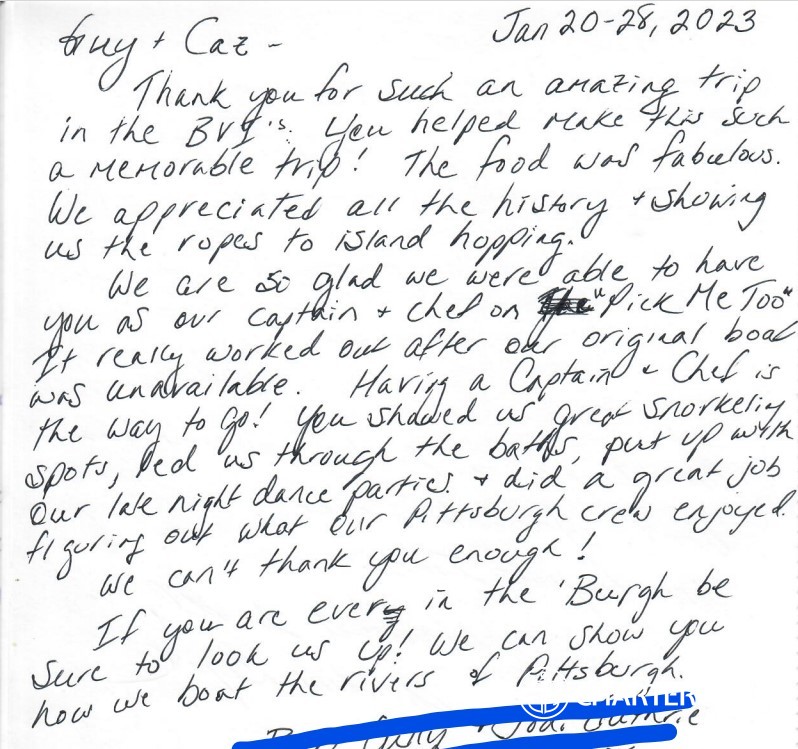 Guy + Caz -
Jan 20-28, 2023
Thank you for such an amazing trip
in the BVI's. You helped make this such
a memorable trip! The food was fabulous.
We appreciated all the history + showing
us the ropes to island hopping.
We are so glad we were able to have
you as our captain + chef on "Pick Me Too"
It really worked out after our original boat
was unavailable. Having a Captain + Chef is
the way to go! You showed us great snorkeling
spots, led us through the baths, put up with
our late night dance parties + did a great job
figuring out what our Pittsburgh crew enjoyed.
We can't thank you enough!
If you are ever in the 'Burgh be
sure to look us up! We can show you
how we boat the rivers of Pittsburgh.
CHARTER
Guthrie